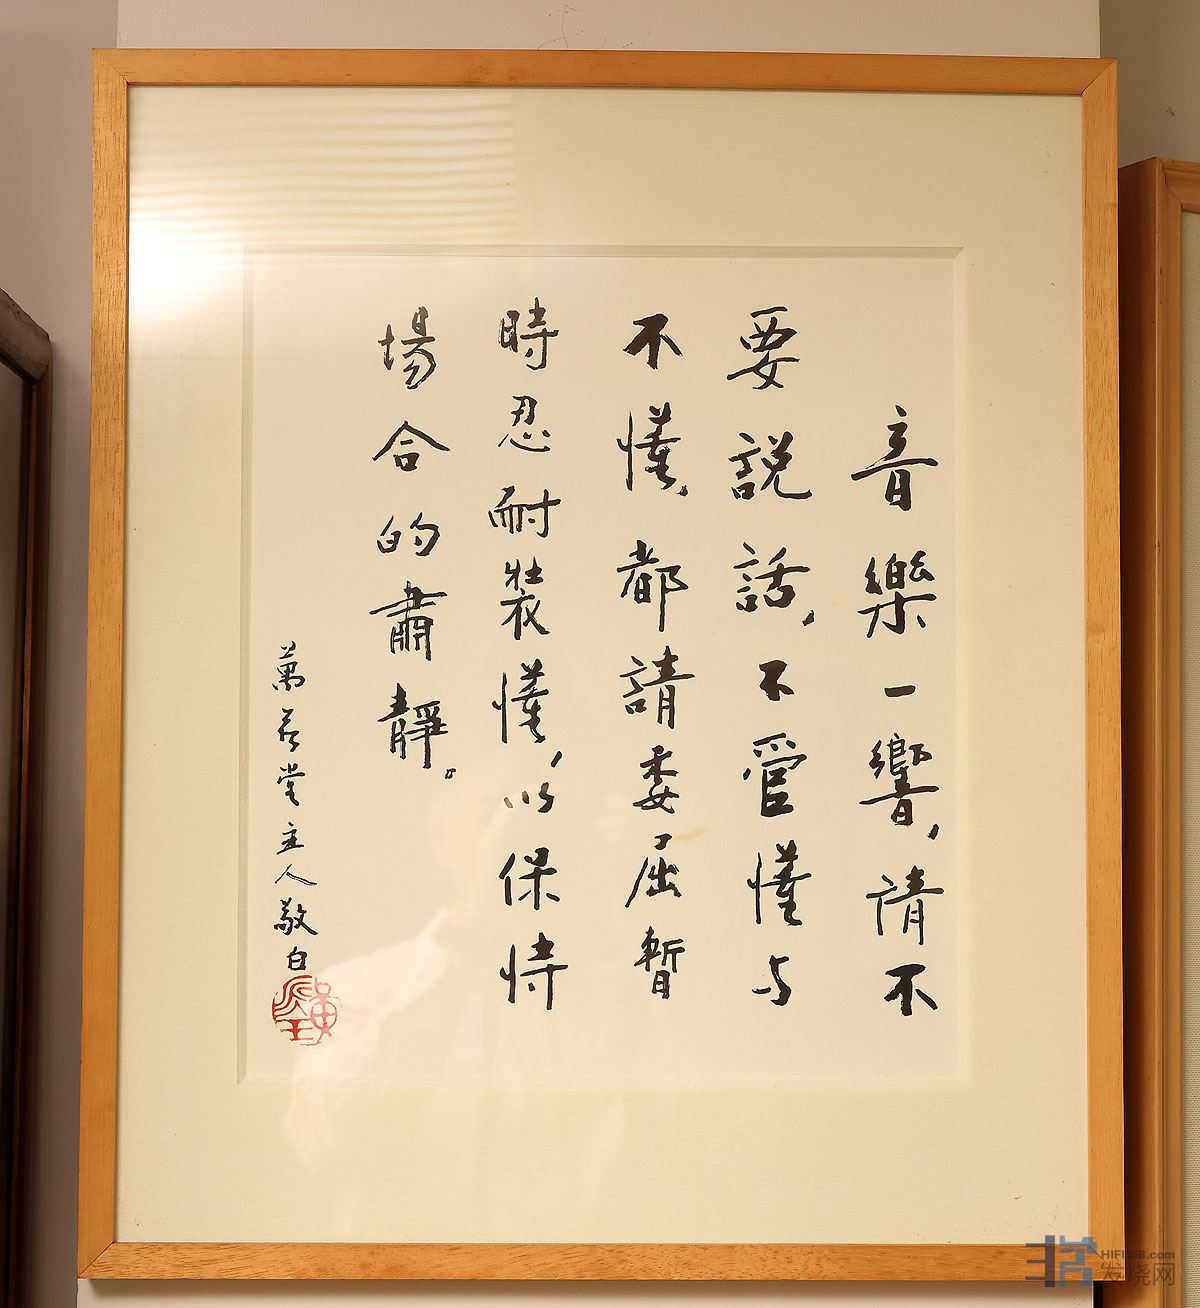 音樂一響，請不
要說話，不管懂与
不懂，都請委屈暫
時忍耐裝懂，以保持
場合的肅靜。
萬荷堂主人敬白
HIFI168.com
发烧网